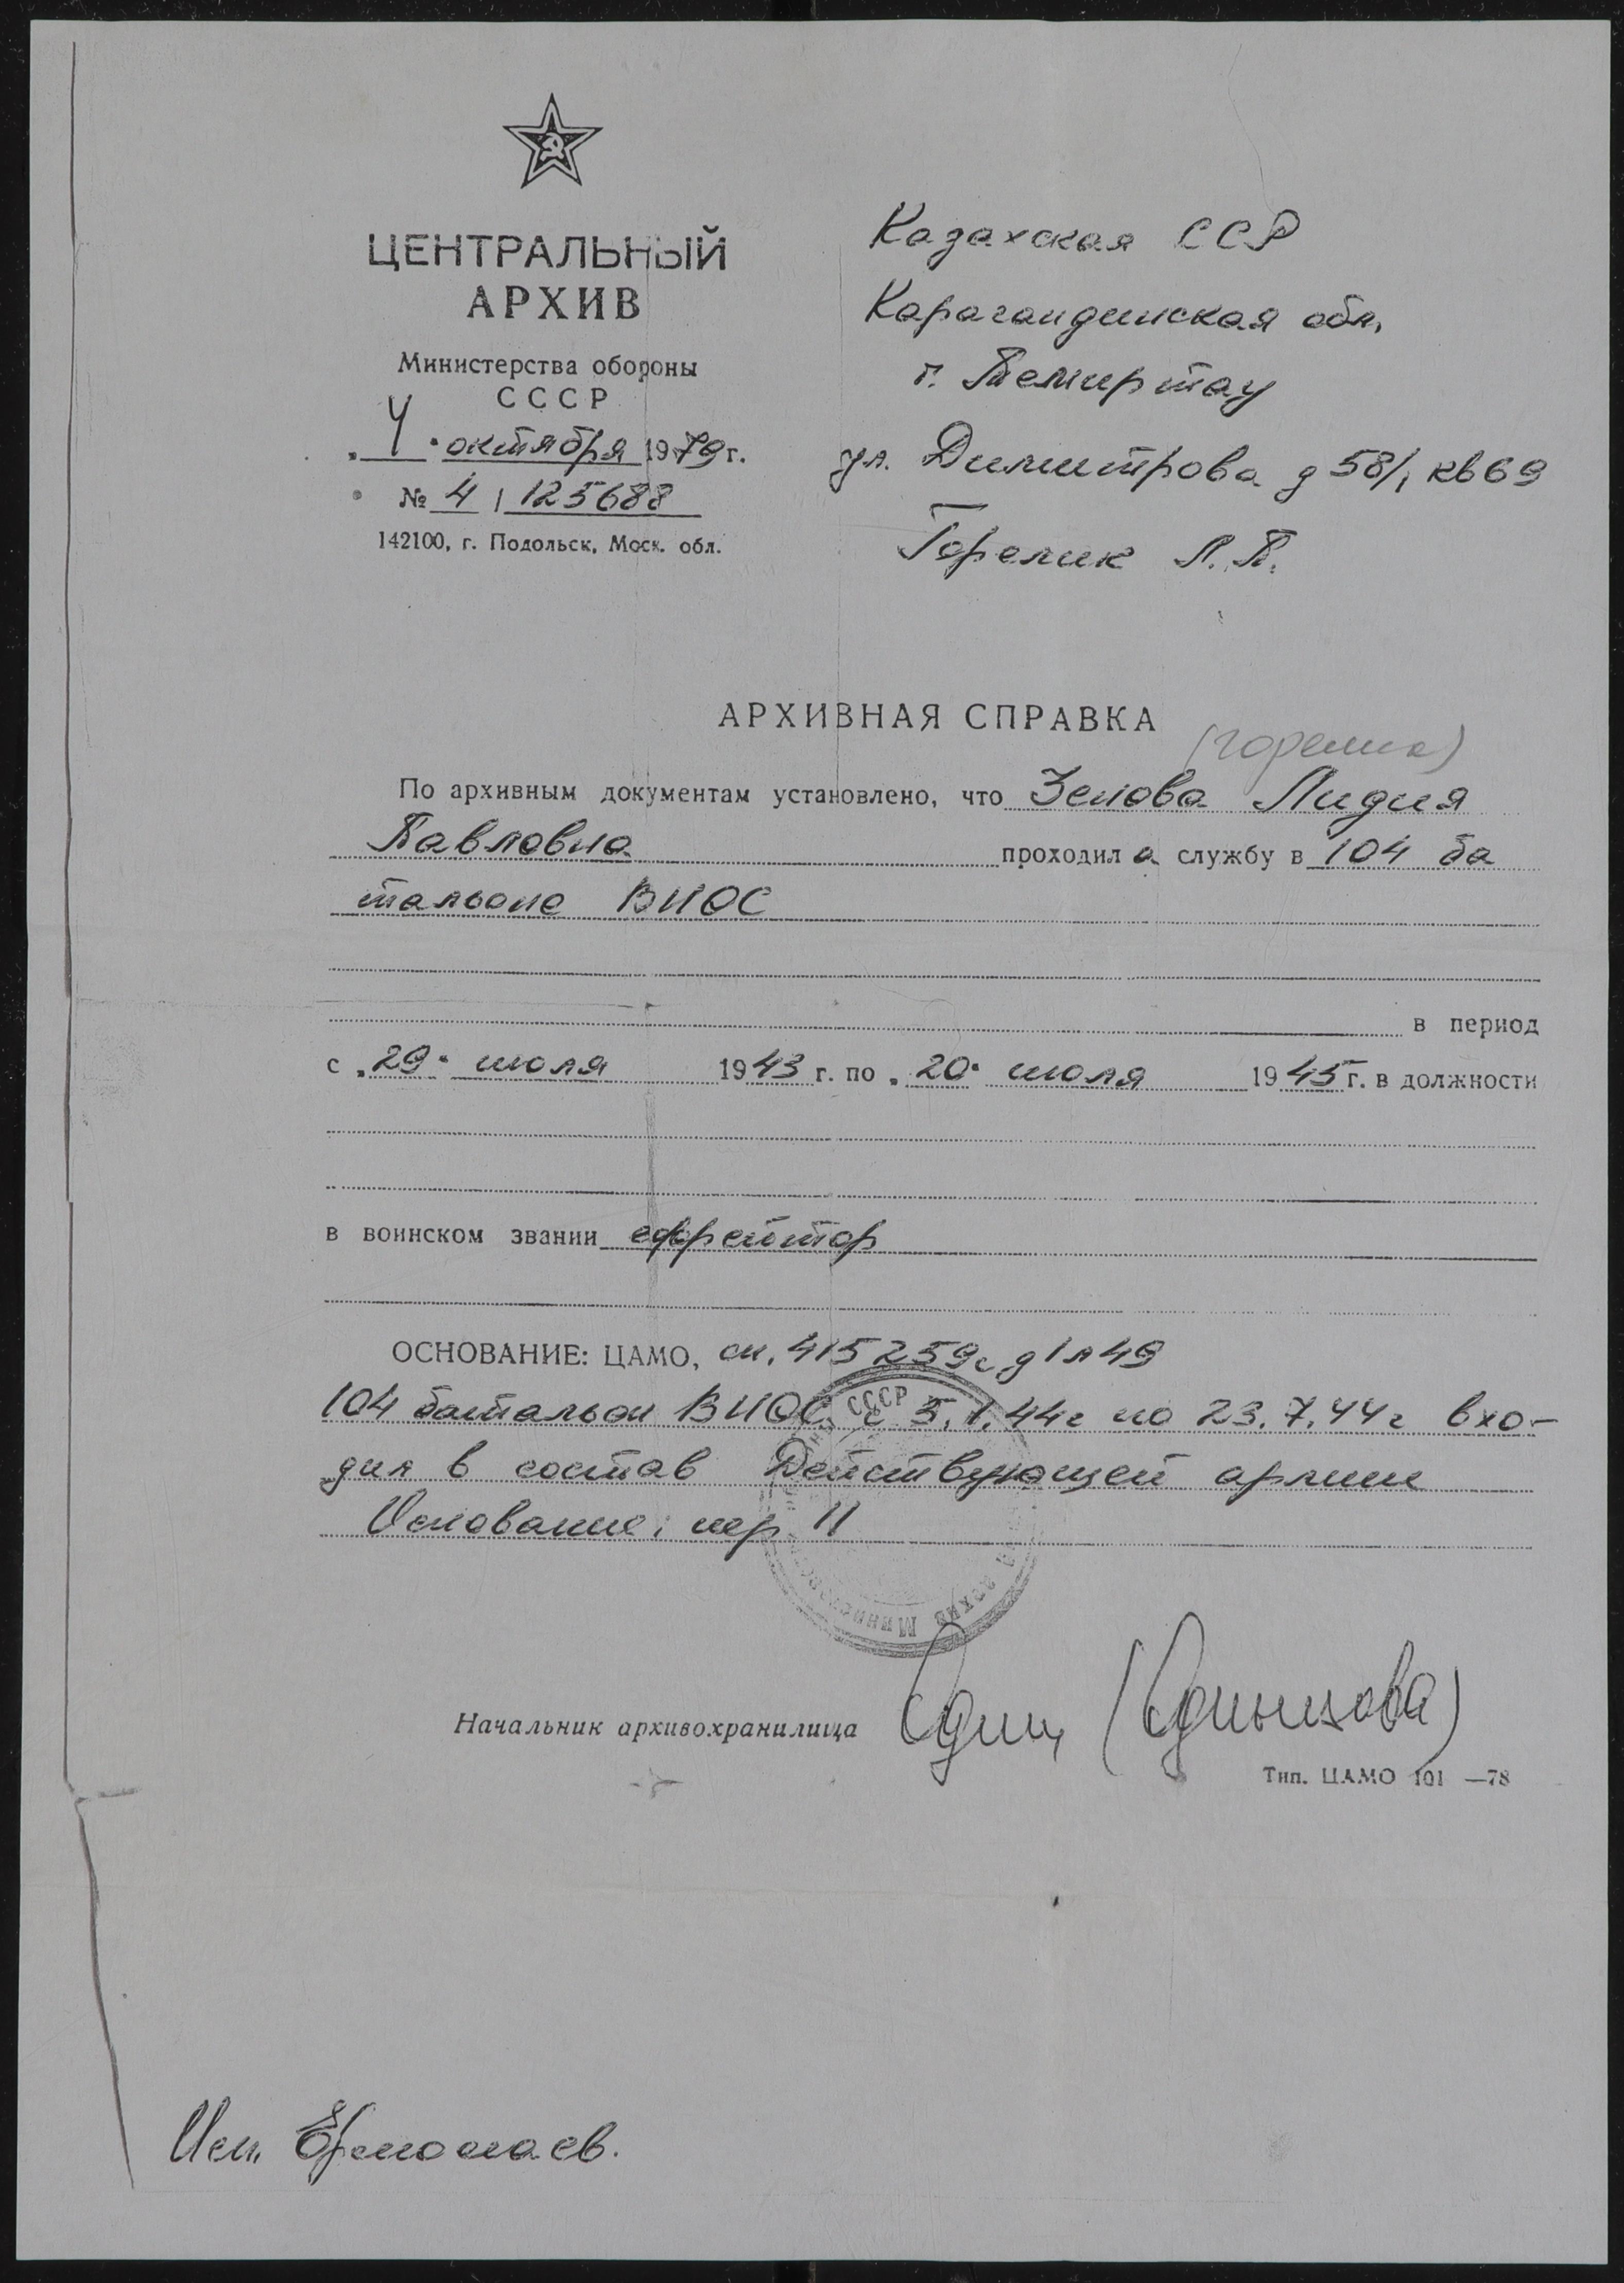 ЦЕНТРАЛЬНЫЙ
АРХИВ
Министерства обороны
СССР
"4" октября 1979 г.
№ 4 / 125688
142100, г. Подольск, Моск. обл.
Казахская ССР
Карагандинская обл,
г. Темиртау
ул. Димитрова д 58/1 кв 69
Горелик Л. П.
АРХИВНАЯ СПРАВКА
По архивным документам установлено, что Лидия
Павловна проходил а службу в 104 ба
тальоне ВНОС
в период
с "29" июля 1943 г. по "20" июля 1945 г. в должности
в воинском звании ефрейтор
ОСНОВАНИЕ: ЦАМО, оп. 415259с д 1 л 49
104 батальон ВНОС с 5.1.44г по 23.7.44г вхо-
дил в состав Действующей армии
Основание: пер 11
СССР
АРХИВ
Начальник архивохранилища Один (Одинцова)
Тип. ЦАМО 101 —78
Исп. Ермолаев.